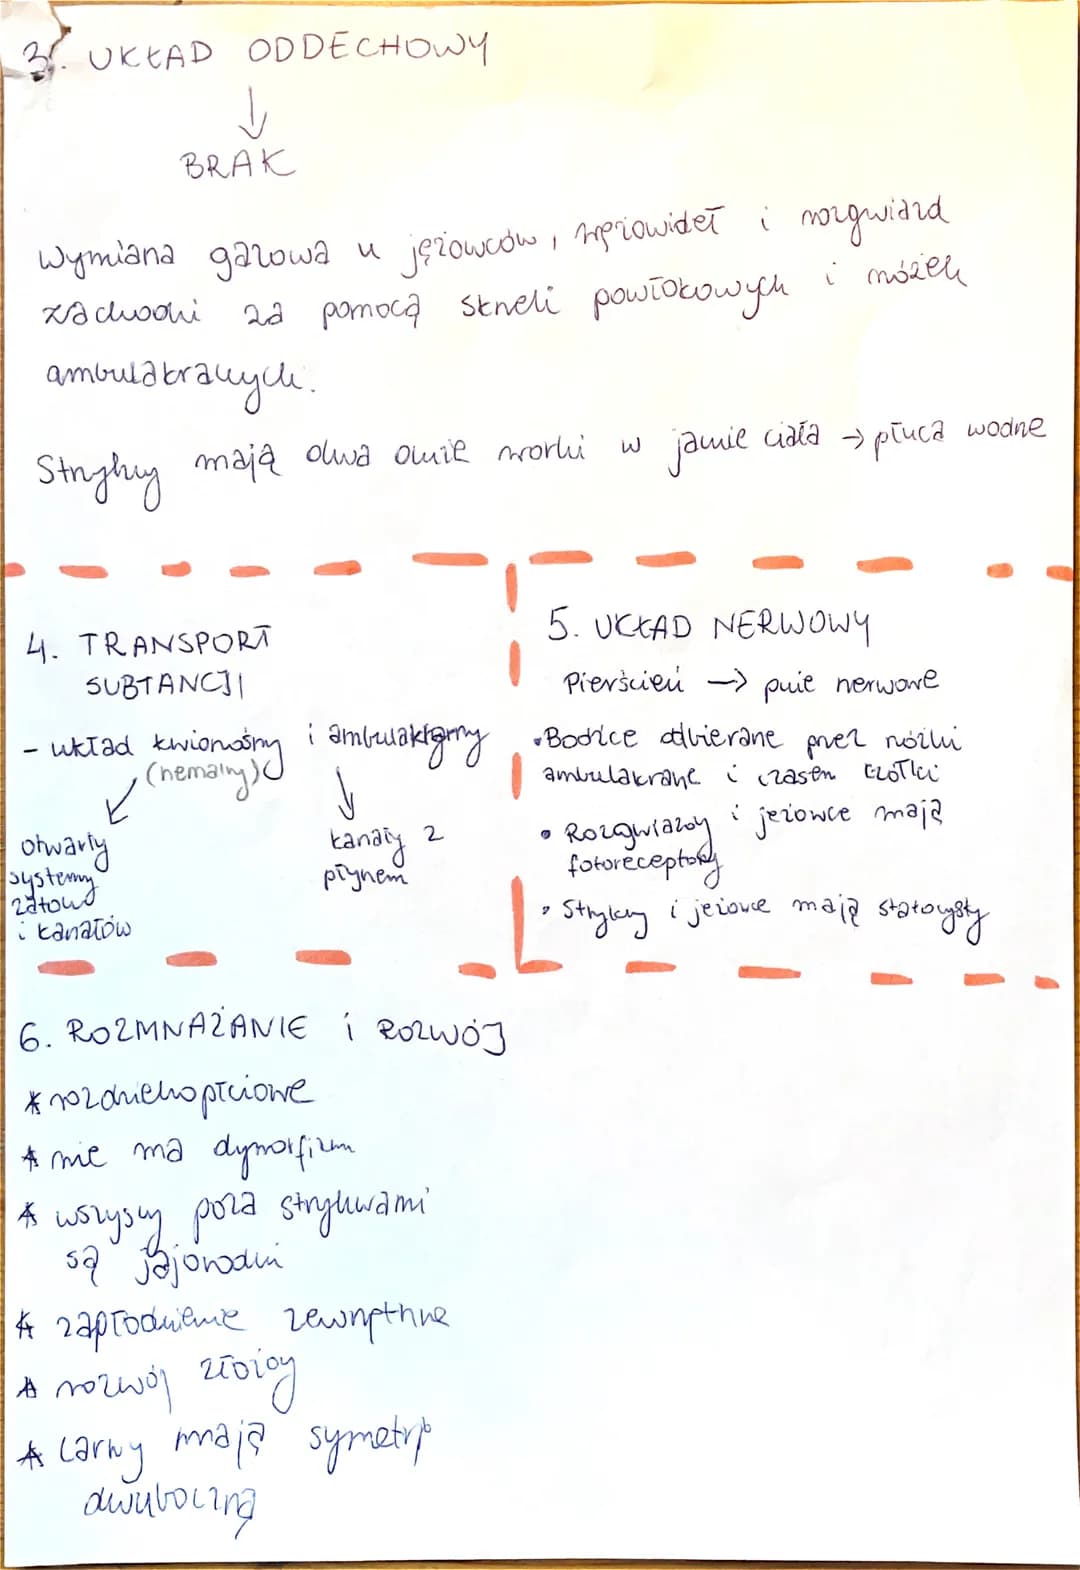 3. UKŁAD ODDECHOWY
↓
BRAK
Wymiana gazowa u jeżowców, wężowideł i rozgwiazd
zachodzi za pomocą skrzeli powłokowych i nóżek
ambulakralnych.
Strzykwy mają dwa duże worki w jamie ciała → płuca wodne
4. TRANSPORT
SUBTANCJI
- układ krwionośny i ambulakralny
(hemalny)
otwarty
systemy
zatok
i kanałów
kanały z
płynem
5. UKŁAD NERWOWY
Pierścień → pnie nerwowe
• Bodźce odbierane przez nóżki
ambulakralne i czasem czółki
• Rozgwiazdy i jeżowce mają
fotoreceptory
• Strzykwy i jeżowce mają statocysty
6. ROZMNAŻANIE i ROZWÓJ
* rozdzielnopłciowe
* nie ma dymorfizm
* wszyscy poza strzykwami
są jajorodni
* zapłodnienie zewnętrzne
* rozwój złożony
* Larwy mają symetrię
dwuboczną